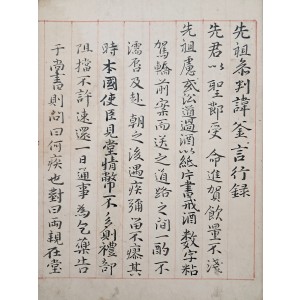 先祖參判諱釜言行錄
先君以聖節受 命進賀飮量不淺
先祖慮或沁道過酒以紙片書戒酒數字粘
駕轎前案而送之道路之間一酌不
濡唇及赴朝之後遇疾彌留不瘳其
時本國使臣見堂情弊巾不多則禮部
阻擋不許速還一日通事爲乞藥告
于尚書則問曰何疾也對曰両親在堂